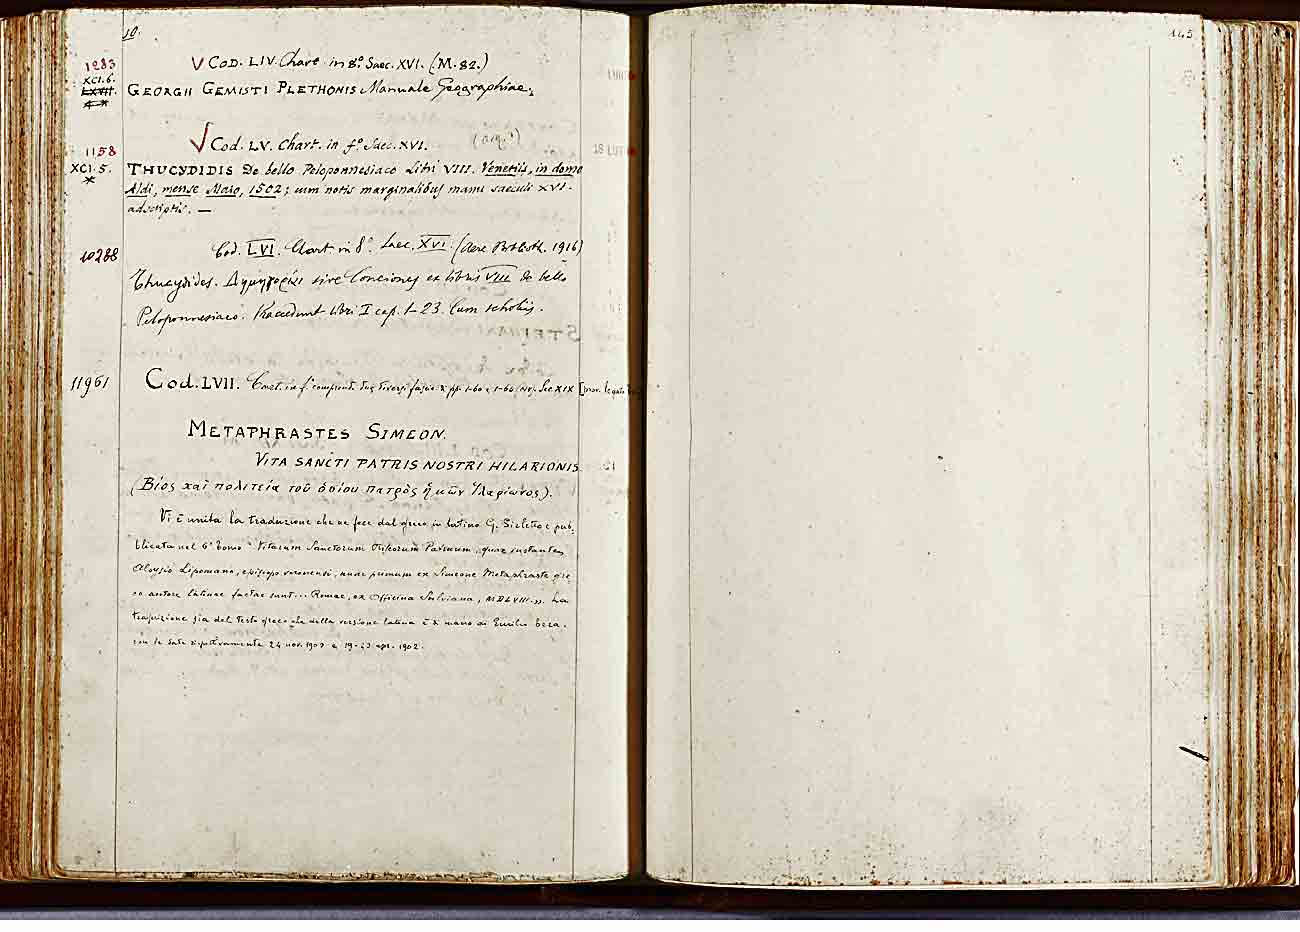 10.
1283
XCI.6.
LXVII.
V COD. LIV. Chart in 8° Saec. XVI. (M. 82.)
GEORGII GEMISTI PLETHONIS Manuale Geographiae.
1158
XCI.5.
*
√ Cod. LV. Chart. in f° Saec. XVI.
THUCYDIDIS De bello Peloponnesiaco Libri VIII. Venetiis, in domo
Aldi, mense Maio, 1502; cum notis marginalibus manu saeculi XVI.
adscriptis. —
10288
Cod. LVI. Chart. in 8° Saec. XVI. (Aere Biblioth. 1916)
Thucydides. Δημηγορίαι sive Conciones ex libris VIII de bello
Peloponnesiaco. Praecedunt libri I cap. 1-23. Cum scholiis.
11961
Cod. LVII. in f° pp. 1-60 e 1-60 Sec XIX
METAPHRASTES SIMEON.
VITA SANCTI PATRIS NOSTRI HILARIONIS
(Βίος καὶ πολιτεία τοῦ ὁσίου πατρὸς ἡμῶν Ἱλαρίωνος).
Vi è unita la traduzione che ne fece dal greco in latino G. Sirleto e pub-
blicata nel 6° tomo "Vitarum Sanctorum Priscorum Patrum, quae instante
Aloysio Lipomano, episcopo veronensi, nunc primum ex Simeone Metaphraste grae-
co autore latinae factae sunt... Romae, ex Officina Salviana, MDLVIII.". La
trascrizione sia del testo greco che della versione latina è di mano di Emilio
con le date rispettivamente 24 nov. 1902 e 19-23 apr. 1902.
145